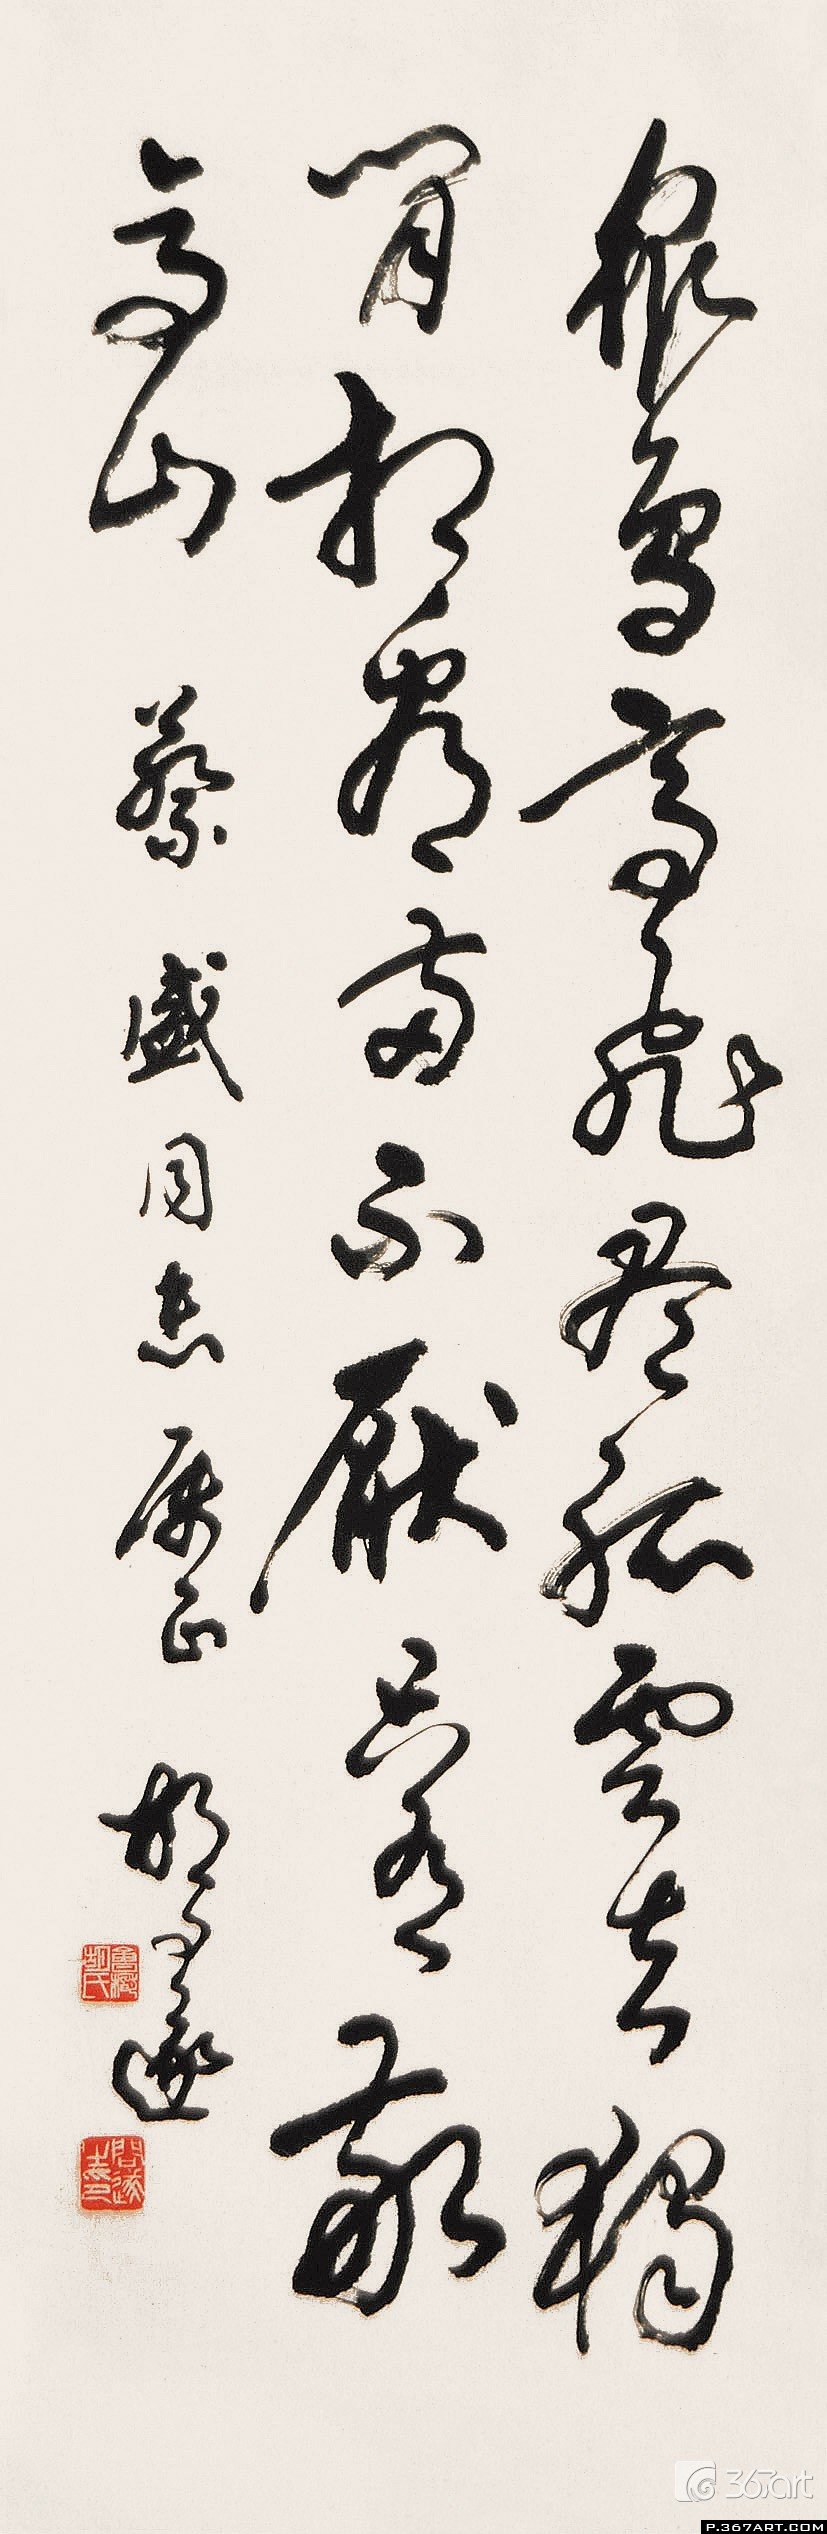 眾鳥高飛尽孤雲去獨
閒相看兩不厭只有敬
亭山 蔡盛同志属正 胡問遂
367art
P.367ART.COM